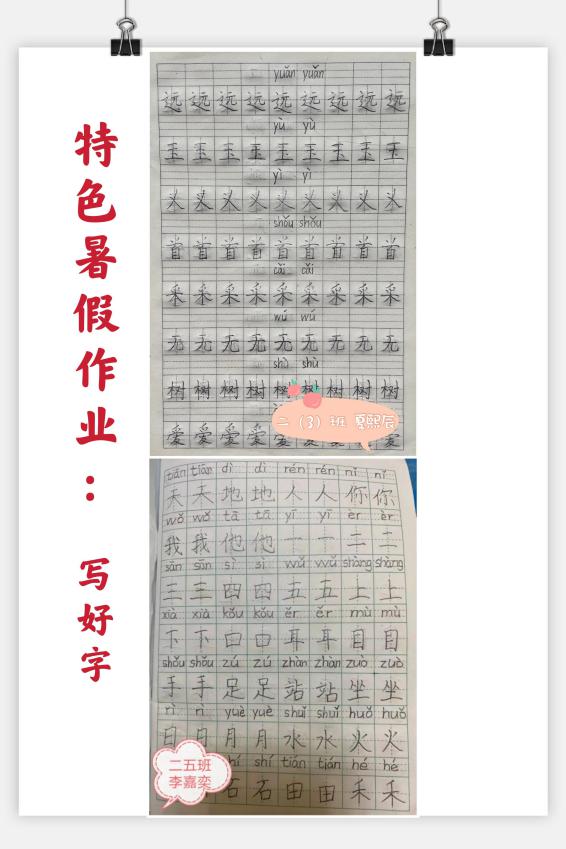 特色暑假作业：
写好字
yuǎn yuǎn
远 远 远 远 远 远 远 远 远
yù yù
玉 玉 玉 玉 玉 玉 玉 玉 玉
yì yì
义 义 义 义 义 义 义 义 义
shǒu shǒu
首 首 首 首 首 首 首 首 首
cǎi cǎi
采 采 采 采 采 采 采 采 采
wú wú
无 无 无 无 无 无 无 无 无
shù shù
树 树 树 树 树 树 树 树 树
爱 爱 爱 爱 爱 爱 爱 爱 爱
二（3）班 夏熙辰
tiān tiān dì dì rén rén nǐ nǐ
天 天 地 地 人 人 你 你
wǒ wǒ tā tā yī yī èr èr
我 我 他 他 一 一 二 二
sān sān sì sì wǔ wǔ shàng shàng
三 三 四 四 五 五 上 上
xià xià kǒu kǒu ěr ěr mù mù
下 下 口 口 耳 耳 目 目
shǒu shǒu zú zú zhàn zhàn zuò zuò
手 手 足 足 站 站 坐 坐
rì rì yuè yuè shuǐ shuǐ huǒ huǒ
日 日 月 月 水 水 火 火
shí shí tián tián hé hé
石 石 田 田 禾 禾
二五班
李嘉奕